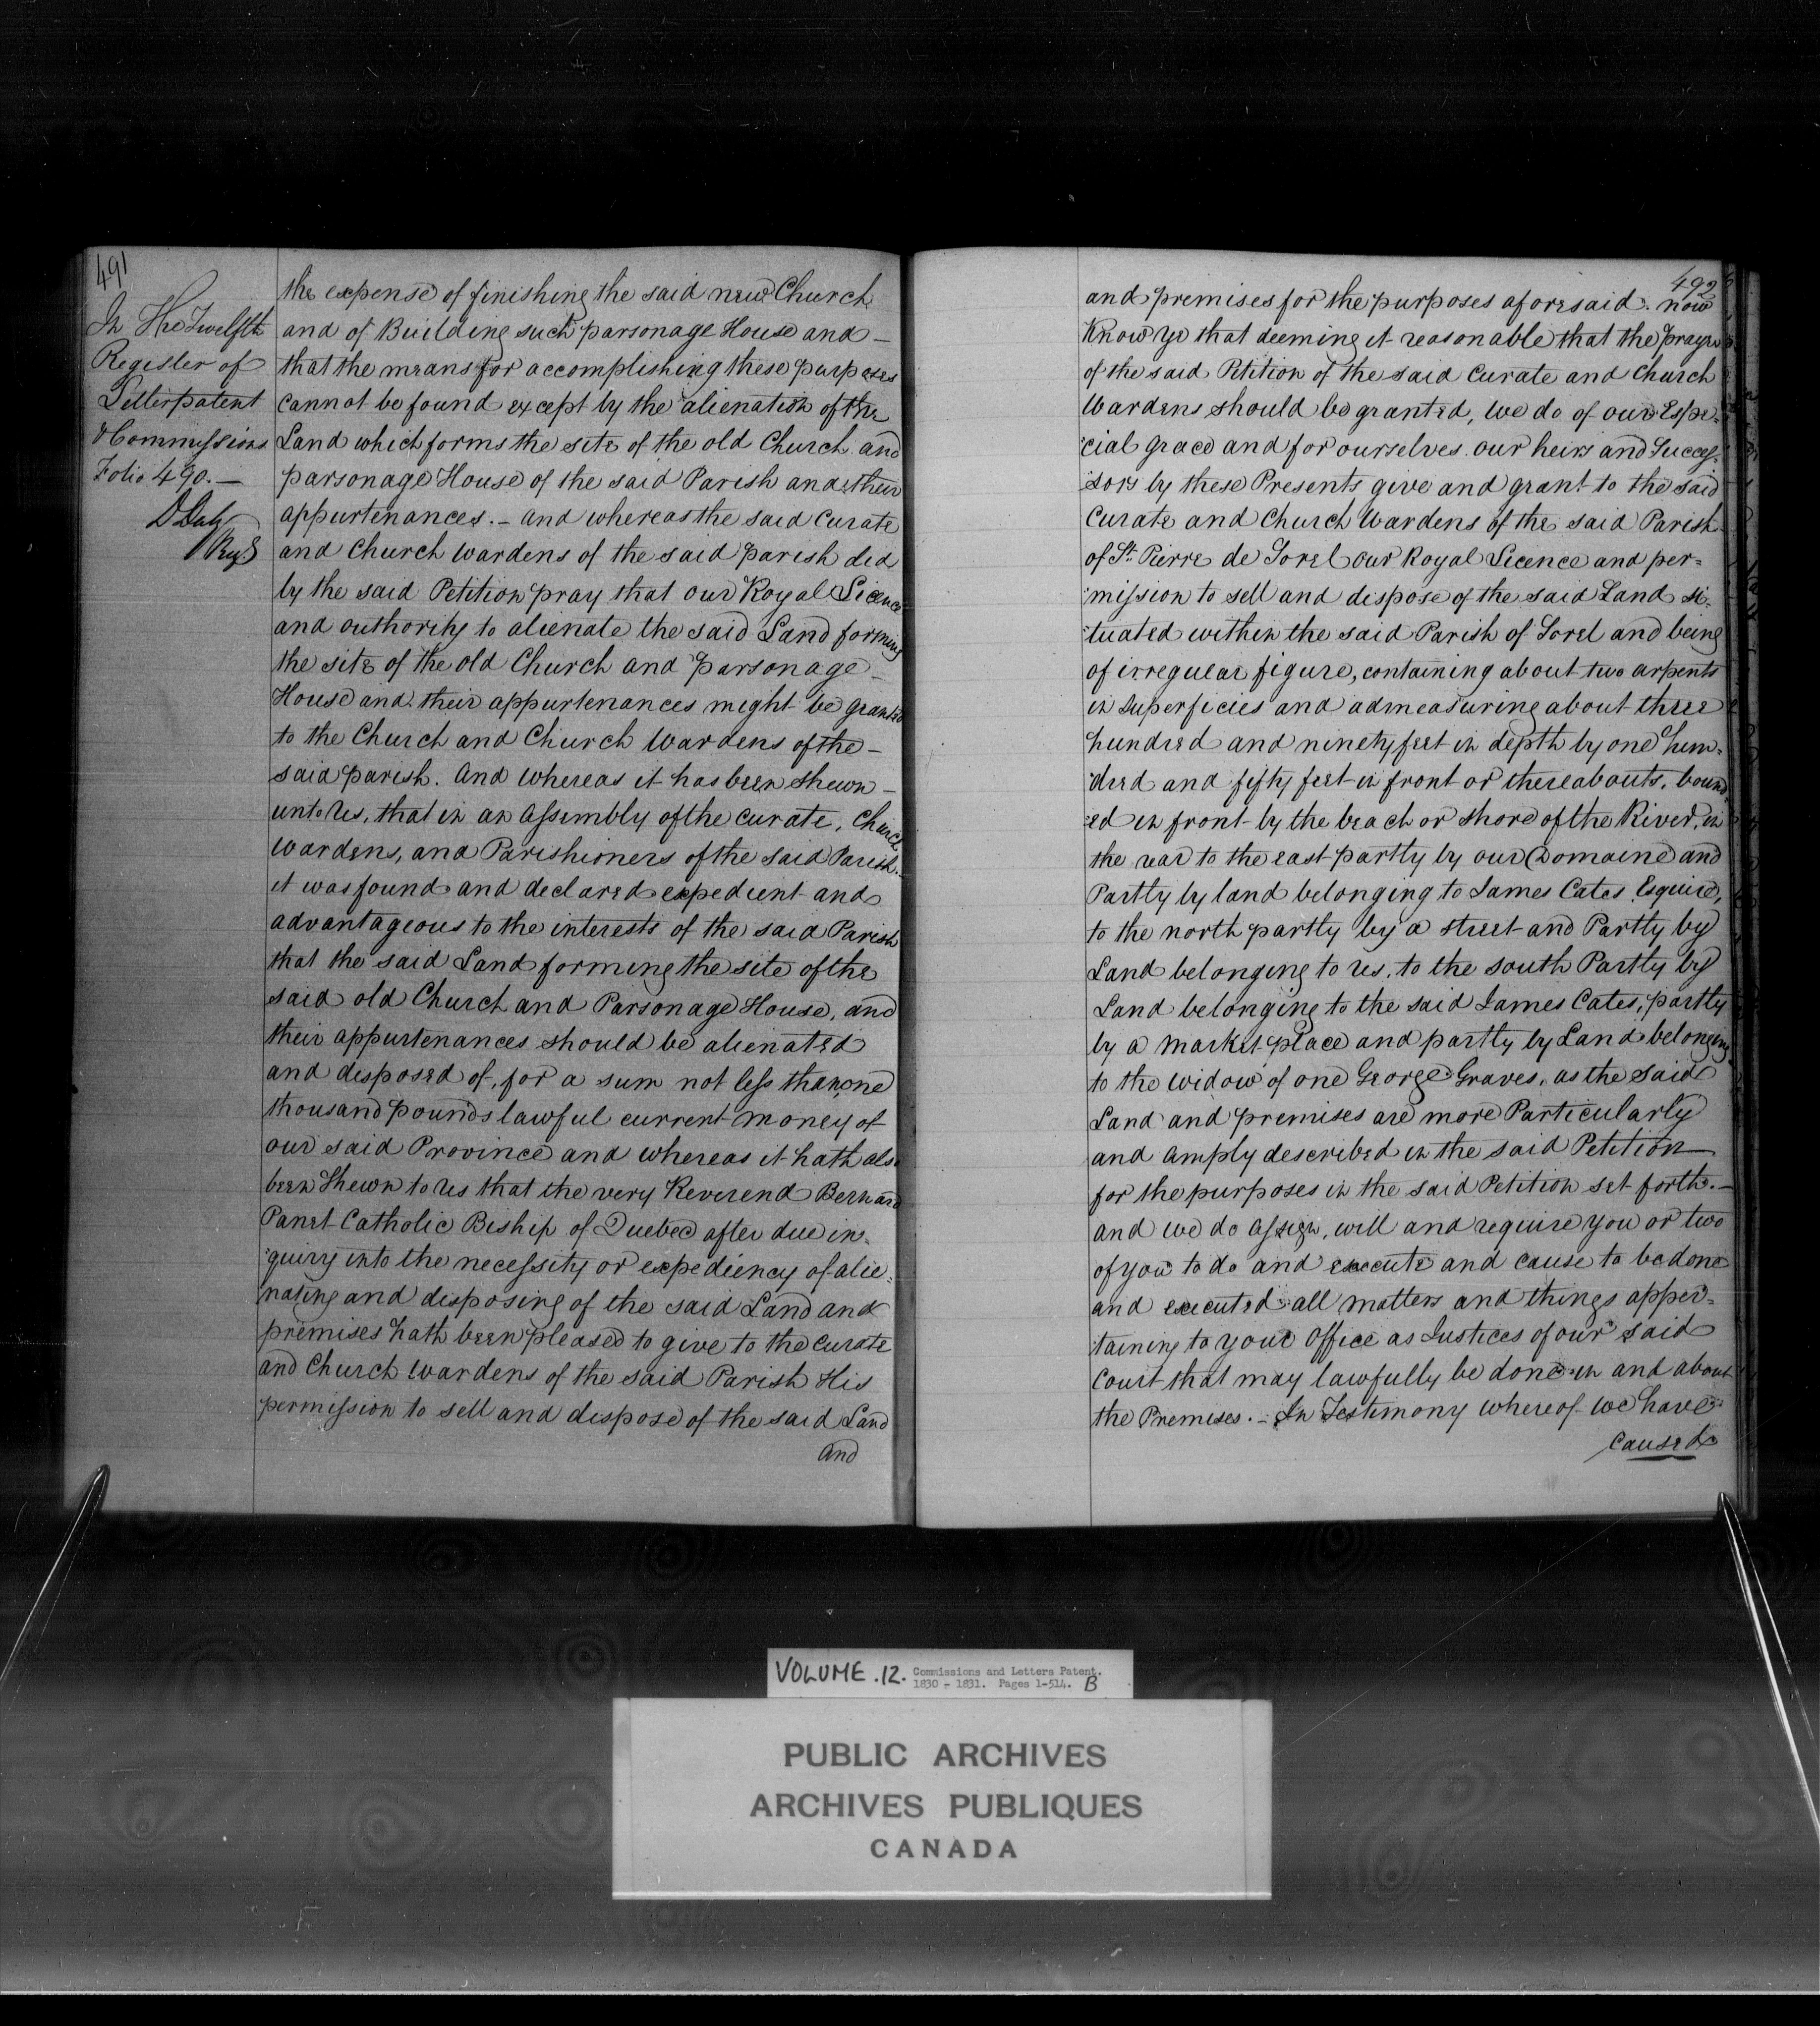 491
In The Twelfth
Register of
Letterpatent
& Commissions
Folio 490. —
D Daly
Regr
the expense of finishing the said new Church
and of Building such parsonage House and —
that the means for accomplishing these purposes
cannot be found except by the alienation of the
Land which forms the site of the old Church and
parsonage House of the said Parish and their
appurtenances. — and whereas the said Curate
and Church wardens of the said parish did
by the said Petition pray that our Royal Licence
and authority to alienate the said Land forming
the site of the old Church and Parsonage —
House and their appurtenances might be granted
to the Church and Church Wardens of the —
said parish. And whereas it has been shewn —
unto Us, that in an assembly of the curate, Church
wardens, and Parishioners of the said Parish.
it was found and declared expedient and
advantageous to the interests of the said Parish
that the said Land forming the site of the
said old Church and Parsonage House, and
their appurtenances should be alienated
and disposed of, for a sum not less than one
thousand pounds lawful current money of
our said Province and whereas it hath also
been Shewn to Us that the very Reverend Bernard
Panet Catholic Biship of Quebec after due in-
quiry into the necessity or expediency of alie-
nating and disposing of the said Land and
premises hath been pleased to give to the curate
and Church wardens of the said Parish His
permission to sell and dispose of the said Land
and
492
and premises for the purposes aforesaid. now
Know ye that deeming it reasonable that the prayer
of the said Petition of the said Curate and Church
Wardens should be granted, we do of our Espe-
cial grace and for ourselves our heirs and Succes-
sors by these Presents give and grant to the said
Curate and Church Wardens of the said Parish
of St. Pierre de Sorel our Royal Licence and per=
mission to sell and dispose of the said Land si-
tuated within the said Parish of Sorel and being
of irregular figure, containing about two arpents
in Superficies and admeasuring about three
hundred and ninety feet in depth by one hun-
dred and fifty feet in front or thereabouts, bound-
ed in front by the beach or shore of the River, in
the rear to the east partly by our Domaine and
Partly by land belonging to James Cates Esquire,
to the north partly by a street and Partly by
Land belonging to Us, to the south Partly by
Land belonging to the said James Cates, partly
by a market place and partly by Land belonging
to the widow of one George Graves, as the said
Land and premises are more Particularly
and amply described in the said Petition —
for the purposes in the said Petition set forth. —
and we do assign, will and require you or two
of you to do and execute and cause to be done
and executed all matters and things apper-
taining to your Office as Justices of our said
Court that may lawfully be done in and about
the Premises. — In Testimony whereof we have
caused &c
VOLUME .12. Commissions and Letters Patent.
1830 - 1831. Pages 1-514. B
PUBLIC ARCHIVES
ARCHIVES PUBLIQUES
CANADA